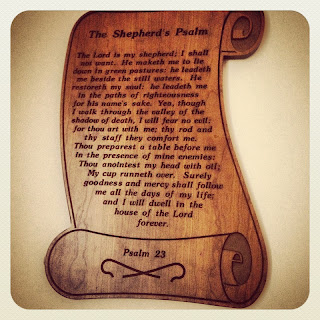 The Shepherd's Psalm
The Lord is my shepherd; I shall
not want. He maketh me to lie
down in green pastures: he leadeth
me beside the still waters. He
restoreth my soul: he leadeth me
in the paths of righteousness
for his name's sake. Yea, though
I walk through the valley of the
shadow of death, I will fear no evil:
for thou art with me; thy rod and
thy staff they comfort me.
Thou preparest a table before me
in the presence of mine enemies:
Thou anointest my head with oil;
My cup runneth over. Surely
goodness and mercy shall follow
me all the days of my life;
and I will dwell in the
house of the Lord
forever.
Psalm 23